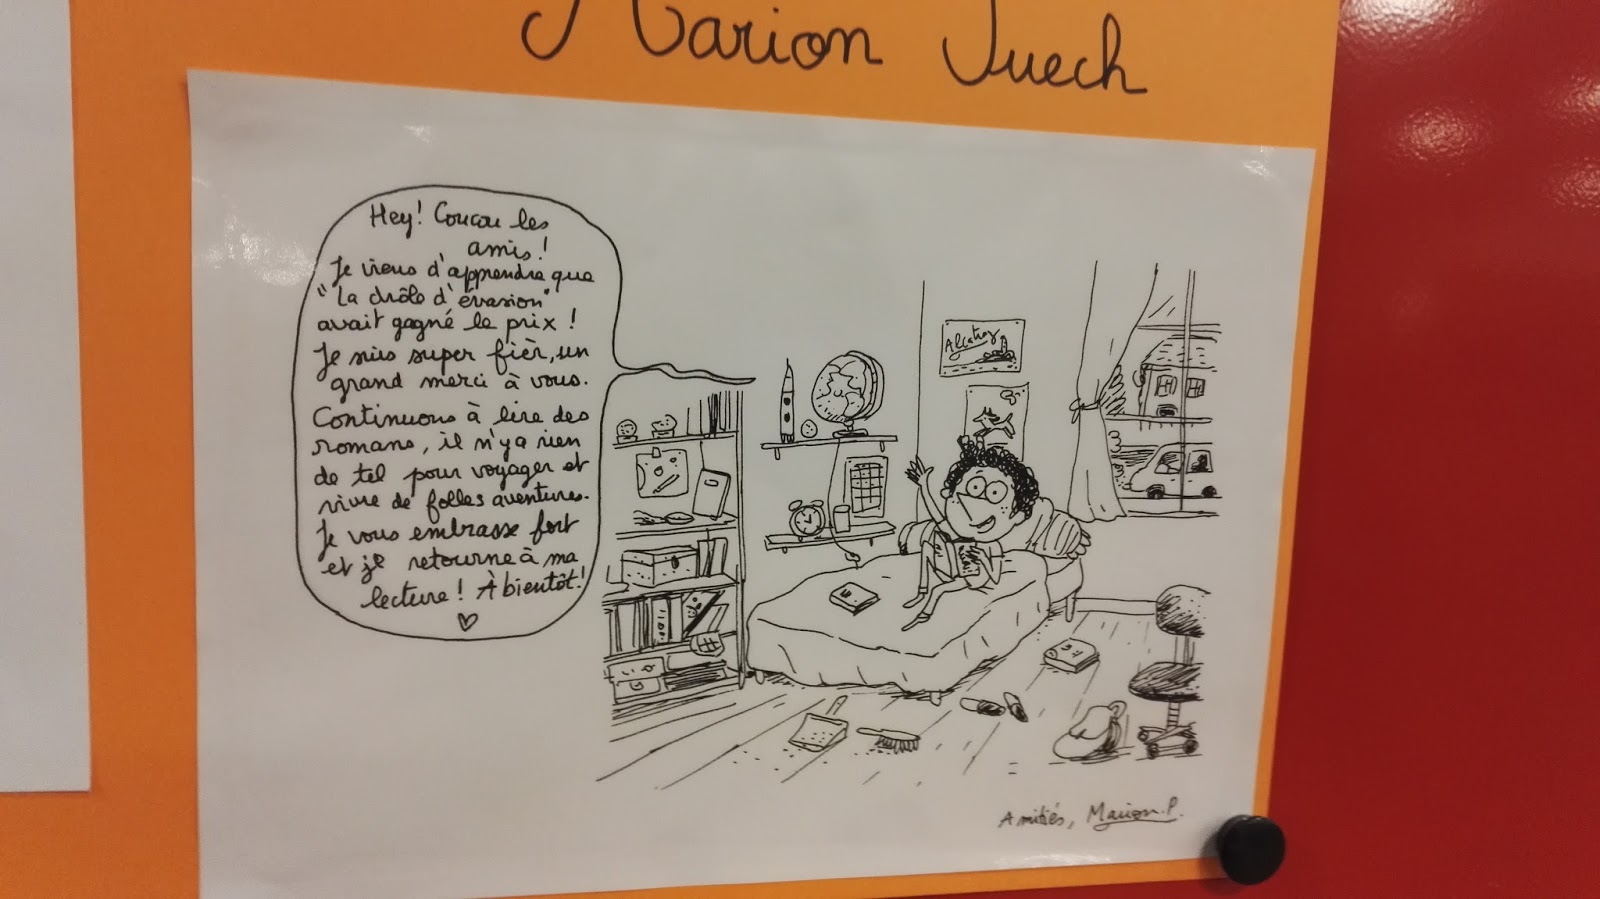 Marion Puech
Hey! Coucou les
amis!
Je viens d'apprendre que
"La drôle d'évasion"
avait gagné le prix !
Je suis super fièr, un
grand merci à vous.
Continuons à lire des
romans, il n'y a rien
de tel pour voyager et
vivre de folles aventures.
Je vous embrasse fort
et je retourne à ma
lecture! À bientôt!
Alcatraz
Amitiés, Marion.P.